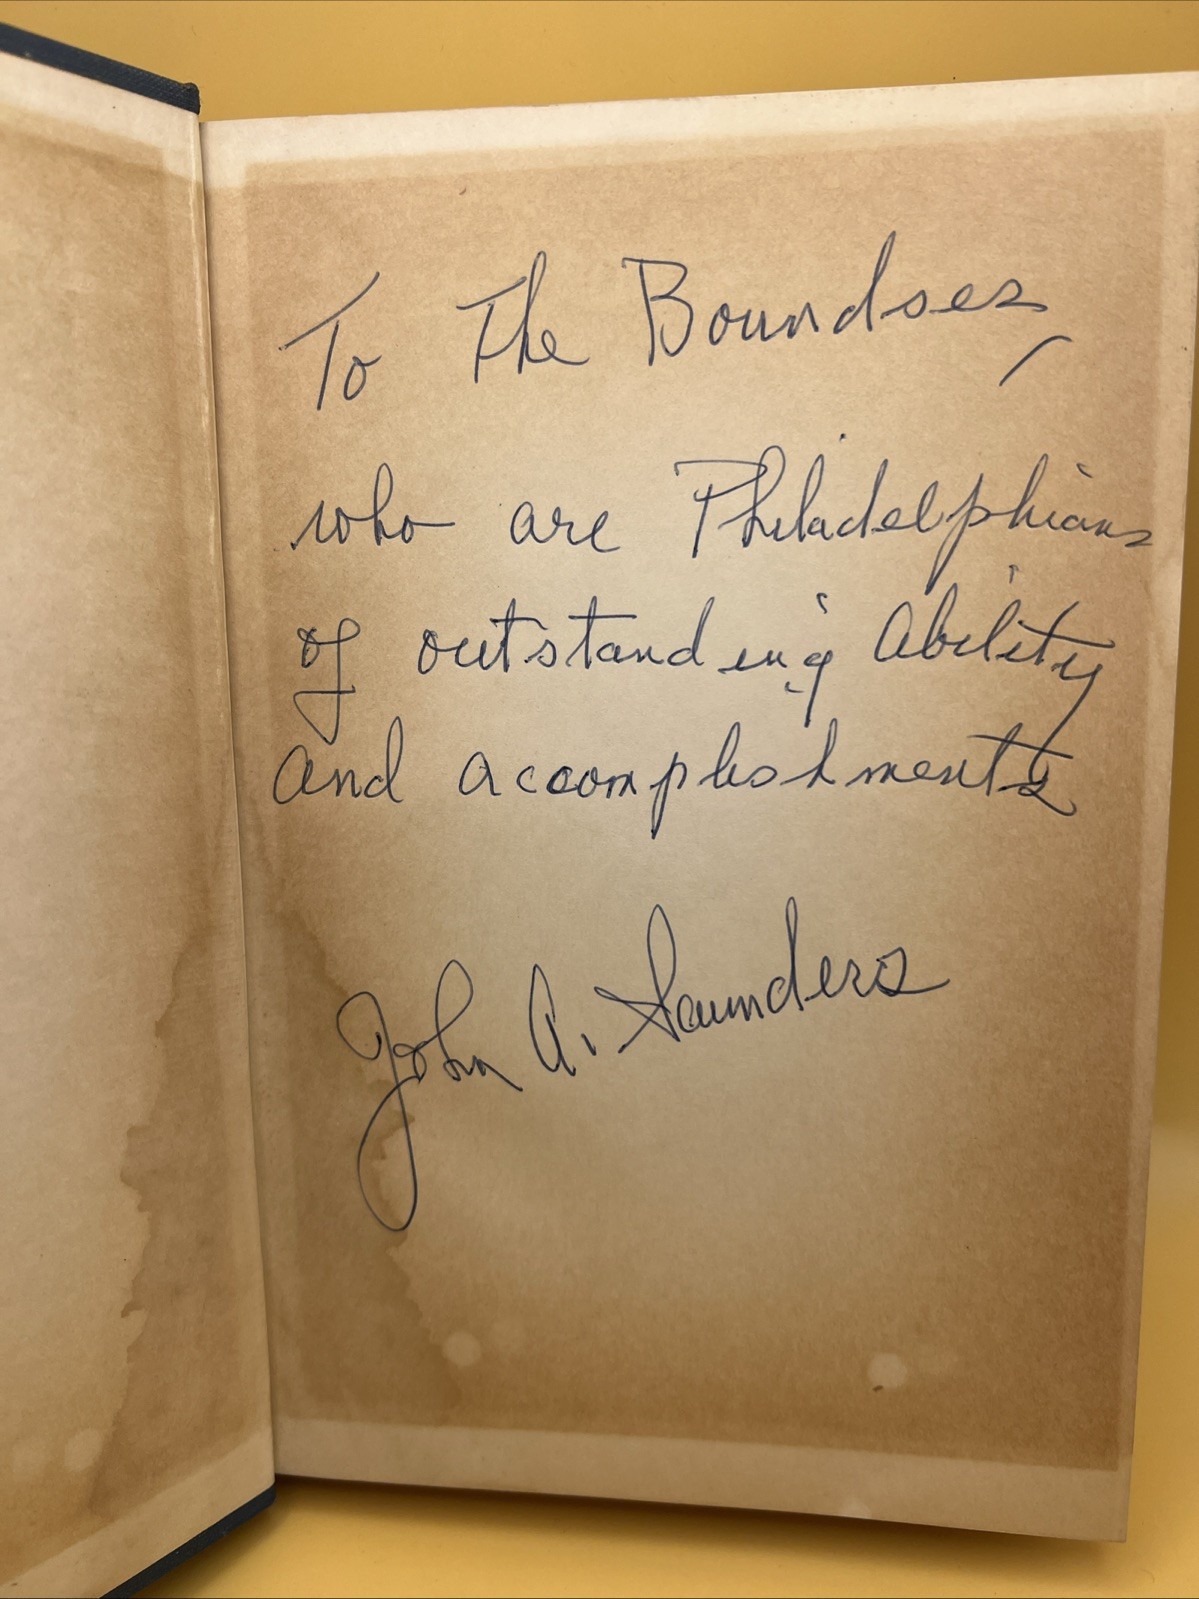 To The Boundses,
who are Philadelphians
of outstanding ability
and accomplishments
John A. Saunders